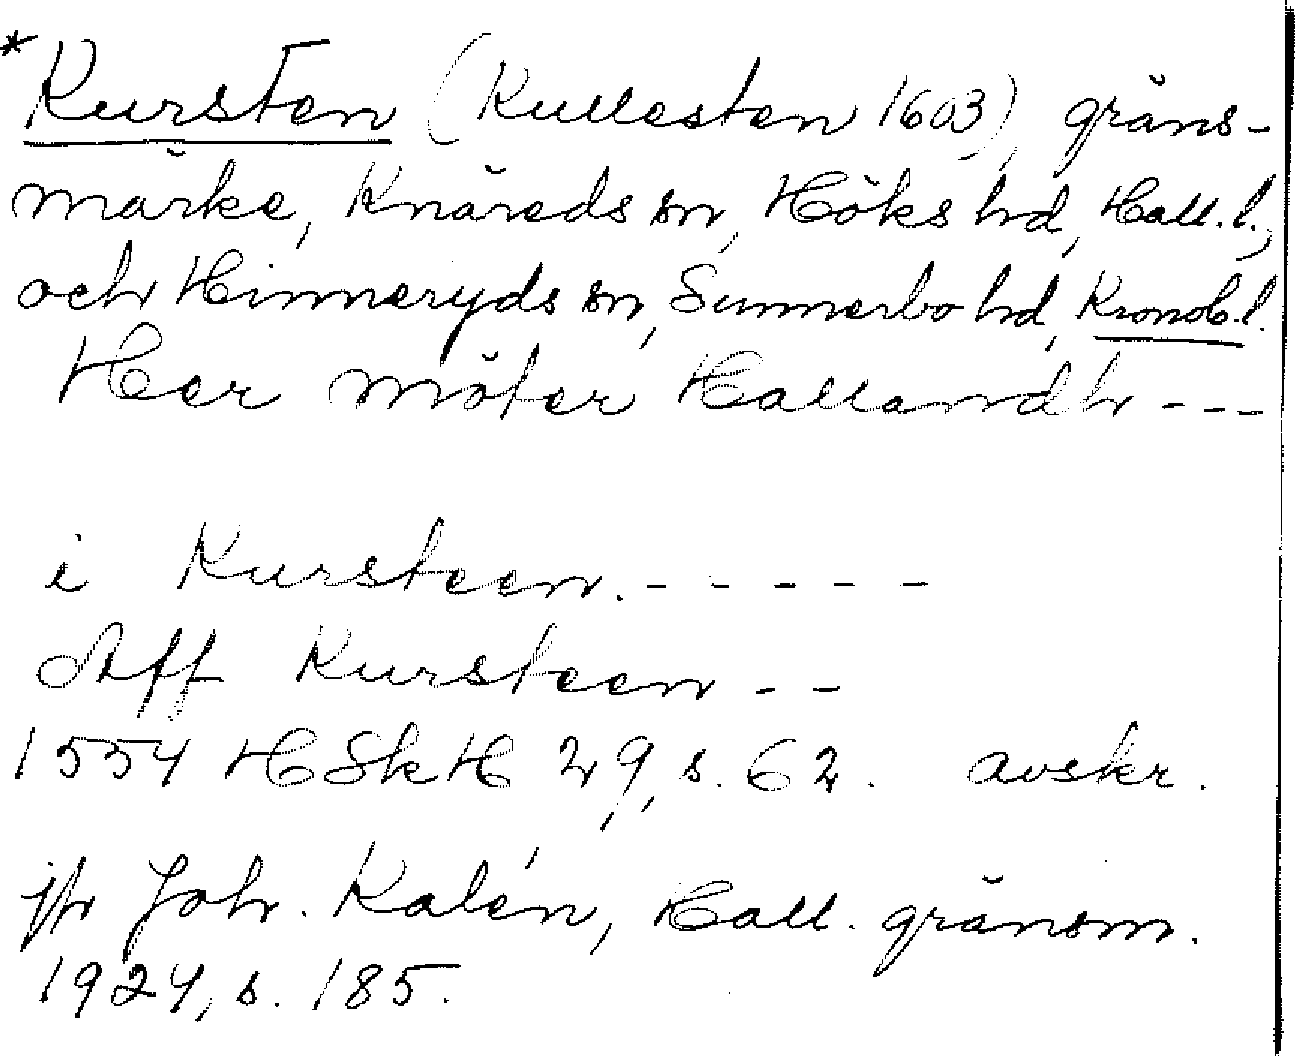 *Kursten (Kullesten 1603), gräns-
märke, Knäreds sn, Höks hd, Hall. l.,
och Hinneryds sn, Sunnerbo hd, Kronob. l.
Her möter Hallandh ---
i Kursteen. - - - - -
Aff Kursteen - -
1554 HSkH 29, s. 62. avskr.
jfr Joh. Kalén, Hall. gränsm.
1924, s. 185.